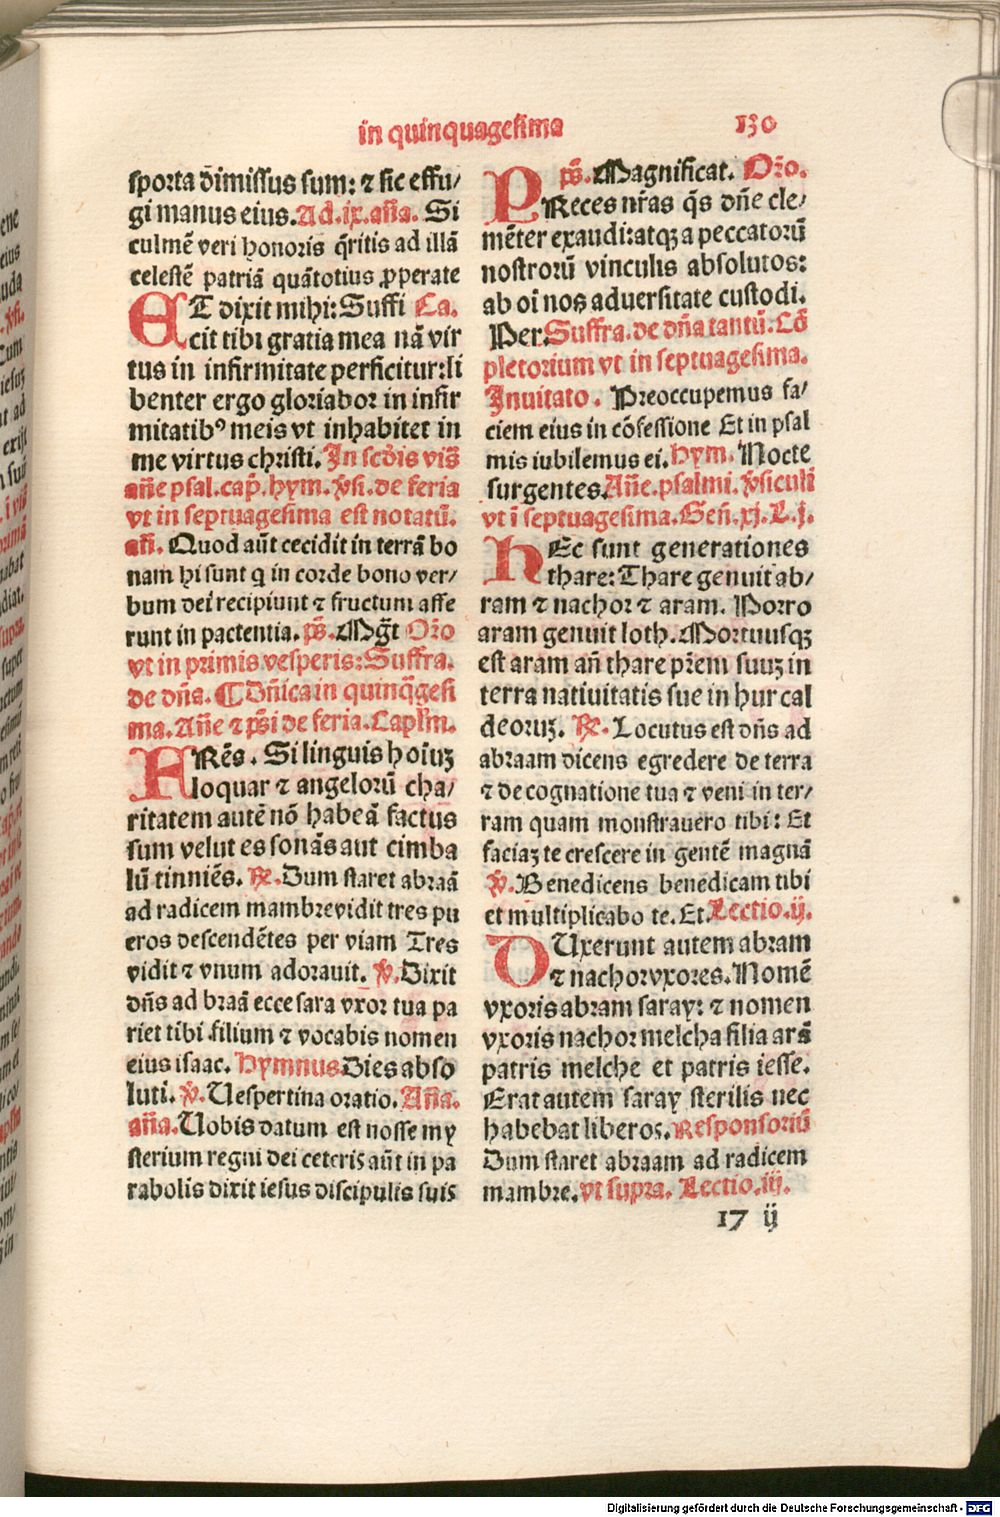 in quinquagesima 130
sporta dimissus sum: ⁊ sic effu/
gi manus eius. Ad. ix. añã. Si
culmē veri honoris q̃ritis ad illã
celestē patriã quãtotius ꝓperate
ET dixit mihi: Suffi Ca.
cit tibi gratia mea nã vir
tus in infirmitate perficitur: li
benter ergo gloriabor in infir
mitatibꝰ meis vt inhabitet in
me virtus christi. In scd̃is vis̃
añe psal. cap̃. hym. v̾si. de feria
vt in septuagesima est notatū.
añ. Quod aūt cecidit in terrã bo
nam hi sunt q in corde bono ver/
bum dei recipiunt ⁊ fructum affe
runt in pactentia. ps̃. Mg̃t Or̃o
vt in primis vesperis: Suffra.
de dñs. ¶ Dñica in quinq̃gesi
ma. Añe ⁊ ps̃i de feria. Caplm̃.
FRēs. Si linguis hoiūꝫ
loquar ⁊ angelorū cha/
ritatem autē nō habeã factus
sum velut es sonãs aut cimba
lū tinniēs. ℟. Dum staret abraã
ad radicem mambre vidit tres pu
eros descendētes per viam Tres
vidit ⁊ vnum adorauit. ℣. Dixit
dñs ad braã ecce sara vxor tua pa
riet tibi filium ⁊ vocabis nomen
eius isaac. Hymnus Dies abso
luti. ℣. Uespertina oratio. Aña.
aña. Uobis datum est nosse my
sterium regni dei ceteris aūt in pa
rabolis dixit iesus discipulis suis
ps̃. Magnificat. Or̃o.
PReces nr̃as q̃s dñe cle/
mēter exaudi: atqꝫ a peccatorū
nostrorū vinculis absolutos:
ab oi nos aduersitate custodi.
Per. Suffra. de dña tantū. Cō
pletorium vt in septuagesima.
Inuitato. Preoccupemus fa/
ciem eius in cōfessione Et in psal
mis iubilemus ei. hym. Nocte
surgentes. Añe. psalmi. v̾siculi
vt ī septuagesima. Geñ. xj. L. j.
HEc sunt generationes
thare: Thare genuit ab/
ram ⁊ nachor ⁊ aram. Porro
aram genuit loth. Mortuusqꝫ
est aram añ thare pr̃em suuꝫ in
terra natiuitatis sue in hur cal
deoruꝫ. ℟. Locutus est dñs ad
abraam dicens egredere de terra
⁊ de cognatione tua ⁊ veni in ter/
ram quam monstrauero tibi: Et
faciaꝫ te crescere in gentē magnã
℣. Benedicens benedicam tibi
et multiplicabo te. Et. Lectio. ij.
DUxerunt autem abram
⁊ nachor vxores. Nomē
vxoris abram saray: ⁊ nomen
vxoris nachor melcha filia arã
patris melche et patris iesse.
Erat autem saray sterilis nec
habebat liberos. Responsoriū
Dum staret abraam ad radicem
mambre. vt supra. Lectio. iij.
17 ij
Digitalisierung gefördert durch die Deutsche Forschungsgemeinschaft - DFG